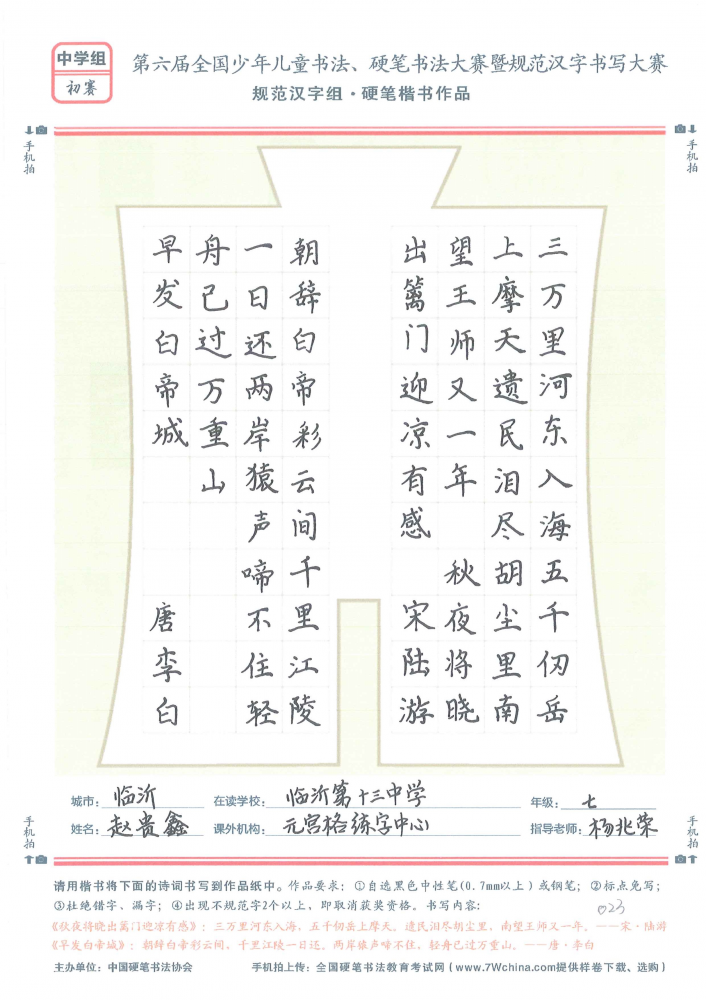 中学组
初赛
第六届全国少年儿童书法、硬笔书法大赛暨规范汉字书写大赛
规范汉字组·硬笔楷书作品
手机拍
手机拍
三万里河东入海五千仞岳
上摩天遗民泪尽胡尘里南
望王师又一年 秋夜将晓
出篱门迎凉有感 宋陆游
朝辞白帝彩云间千里江陵
一日还两岸猿声啼不住轻
舟已过万重山
早发白帝城 唐李白
城市：临沂 在读学校：临沂第十三中学 年级：七
姓名：赵贵鑫 课外机构：元宫格练字中心 指导老师：杨兆荣
手机拍
手机拍
请用楷书将下面的诗词书写到作品纸中。作品要求：①自选黑色中性笔(0.7mm以上)或钢笔；②标点免写；
③杜绝错字、漏字；④出现不规范字2个以上，即取消获奖资格。书写内容：
023
《秋夜将晓出篱门迎凉有感》：三万里河东入海，五千仞岳上摩天。遗民泪尽胡尘里，南望王师又一年。——宋·陆游
《早发白帝城》：朝辞白帝彩云间，千里江陵一日还。两岸猿声啼不住，轻舟已过万重山。——唐·李白
主办单位：中国硬笔书法协会 手机拍上传：全国硬笔书法教育考试网(www.7Wchina.com提供样卷下载、选购)